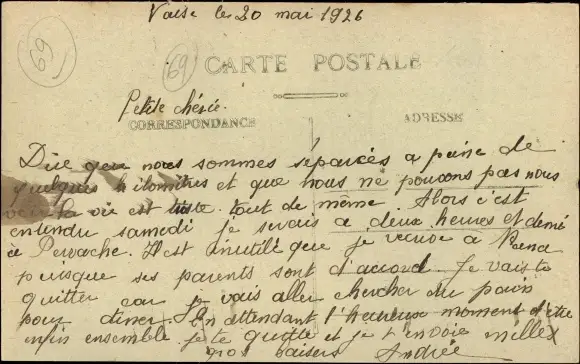 Vaise le 20 mai 1926
69
69
CARTE POSTALE
Petite chérie.
CORRESPONDANCE
ADRESSE
Dire que nous sommes séparées a peine de
quelques kilomètres et que nous ne pouvons pas nous
voir la vie est triste tout de même. Alors c'est
entendu samedi je serais a deux heures et demi
à Perrache. Il est inutile que je récrive à
puisque ses parents sont d'accord. Je vais te
quitter car je vais aller chercher du pain
pour diner. En attendant l'heureux moment d'être
enfin ensemble je te quitte et je t'envoie milles
gros baisers Andrée